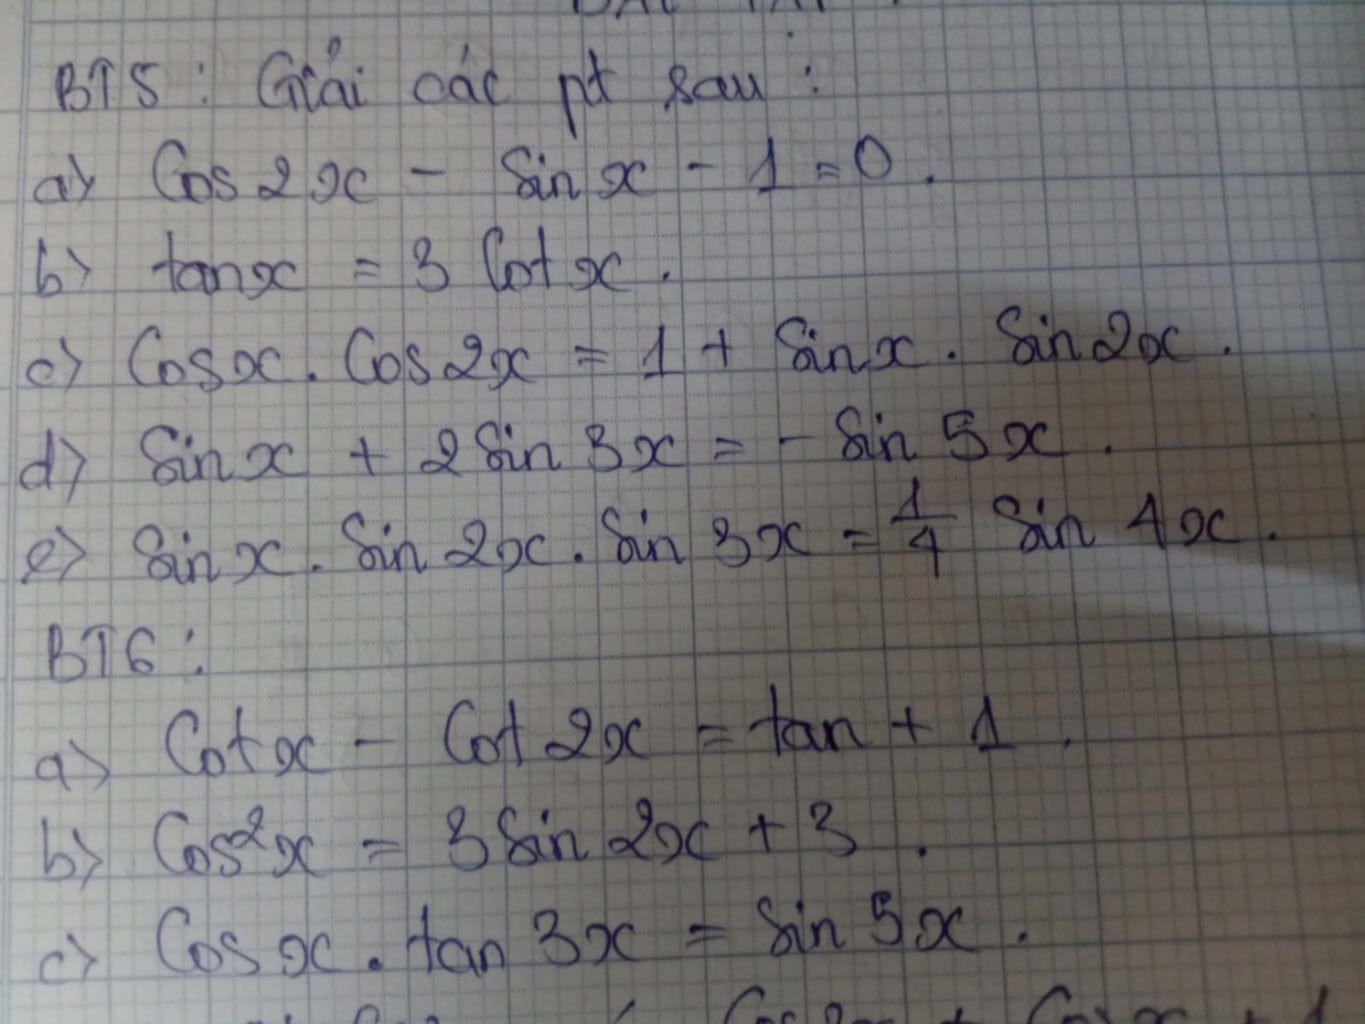 BT5: Giải các pt sau:
a) Cos2x - Sinx - 1 = 0.
b) tanx = 3 Cotx.
c) Cosx. Cos2x = 1 + Sinx. Sin2x.
d) Sinx + 2Sin3x = - Sin 5x.
e) Sinx. Sin2x. Sin3x = 1/4 Sin 4x.
BT6:
a) Cotx - Cot2x = tan + 1.
b) Cos²x = 3Sin2x + 3.
c) Cosx. tan3x = Sin5x.